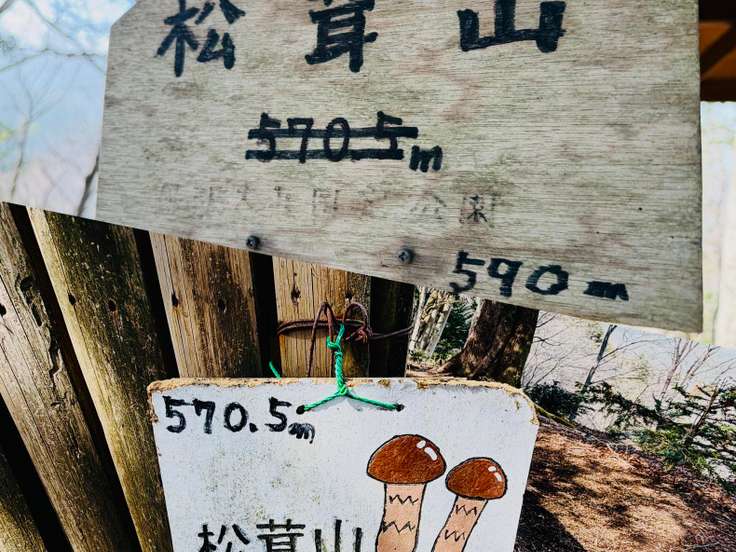 松茸山
570.5m
公園
590m
570.5m
松茸山